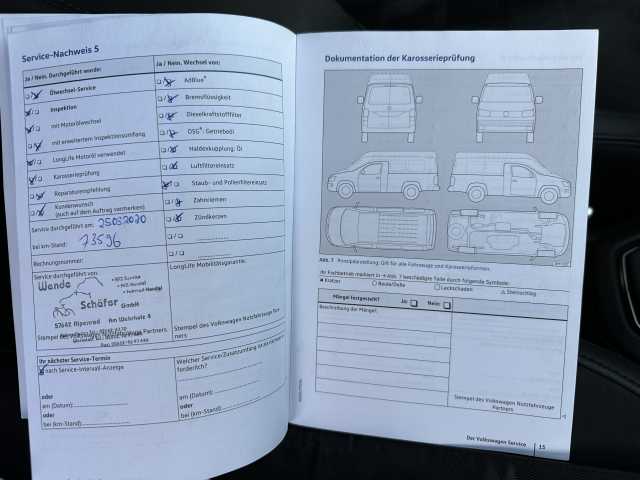 Service-Nachweis 5
Ja / Nein. Durchgeführt wurde:
Ölwechsel-Service
Inspektion
mit Motorölwechsel
mit erweitertem Inspektionsumfang
LongLife Motoröl verwendet
Karosserieprüfung
Reparaturempfehlung
Kundenwunsch
(auch auf dem Auftrag vermerken)
Service durchgeführt am: 25032020
bei km-Stand: 73596
Rechnungsnummer:
Service durchgeführt von:
Wende
Schäfer GmbH
57642 Alpenrod Am Wehrholz 4
Stempel des Volkswagen Nutzfahrzeuge Partners.
Ihr nächster Service-Termin
nach Service-Intervall-Anzeige
oder
am (Datum):
oder
bei (km-Stand):
Ja / Nein. Wechsel von:
AdBlue®
Bremsflüssigkeit
Dieselkraftstofffilter
DSG®, Getriebeöl
Haldexkupplung, Öl
Luftfiltereinsatz
Staub- und Pollenfiltereinsatz
Zahnriemen
Zündkerzen
LongLife Mobilitätsgarantie:
Stempel des Volkswagen Nutzfahrzeuge Partners
Welcher Service/Zusatzumfang ist als nächstes erforderlich?
am (Datum):
oder
bei (km-Stand):
Dokumentation der Karosserieprüfung
Abb. 7 Prinzipdarstellung: Gilt für alle Fahrzeuge und Karosserieformen.
Ihr Fachbetrieb markiert in → Abb. 7 beschädigte Teile durch folgende Symbole:
Kratzer Beule/Delle Lackschaden Steinschlag
Mängel festgestellt? Ja: Nein:
Beschreibung der Mängel:
Stempel des Volkswagen Nutzfahrzeuge
Partners
Der Volkswagen Service 15